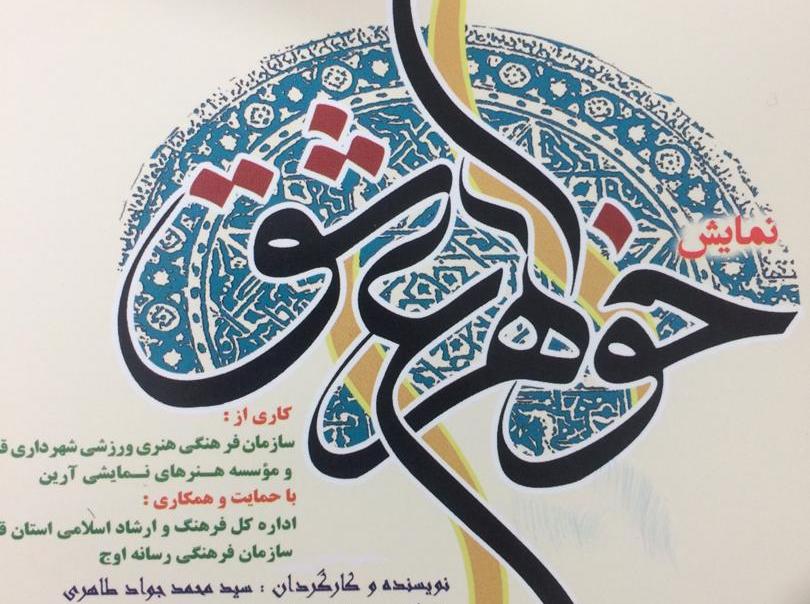 نمایش
خواهر عشق
کاری از :
سازمان فرهنگی هنری ورزشی شهرداری
و مؤسسه هنرهای نمایشی آرین
با حمایت و همکاری :
اداره کل فرهنگ و ارشاد اسلامی استان
سازمان فرهنگی رسانه اوج
نویسنده و کارگردان : سید محمد جواد طاهری